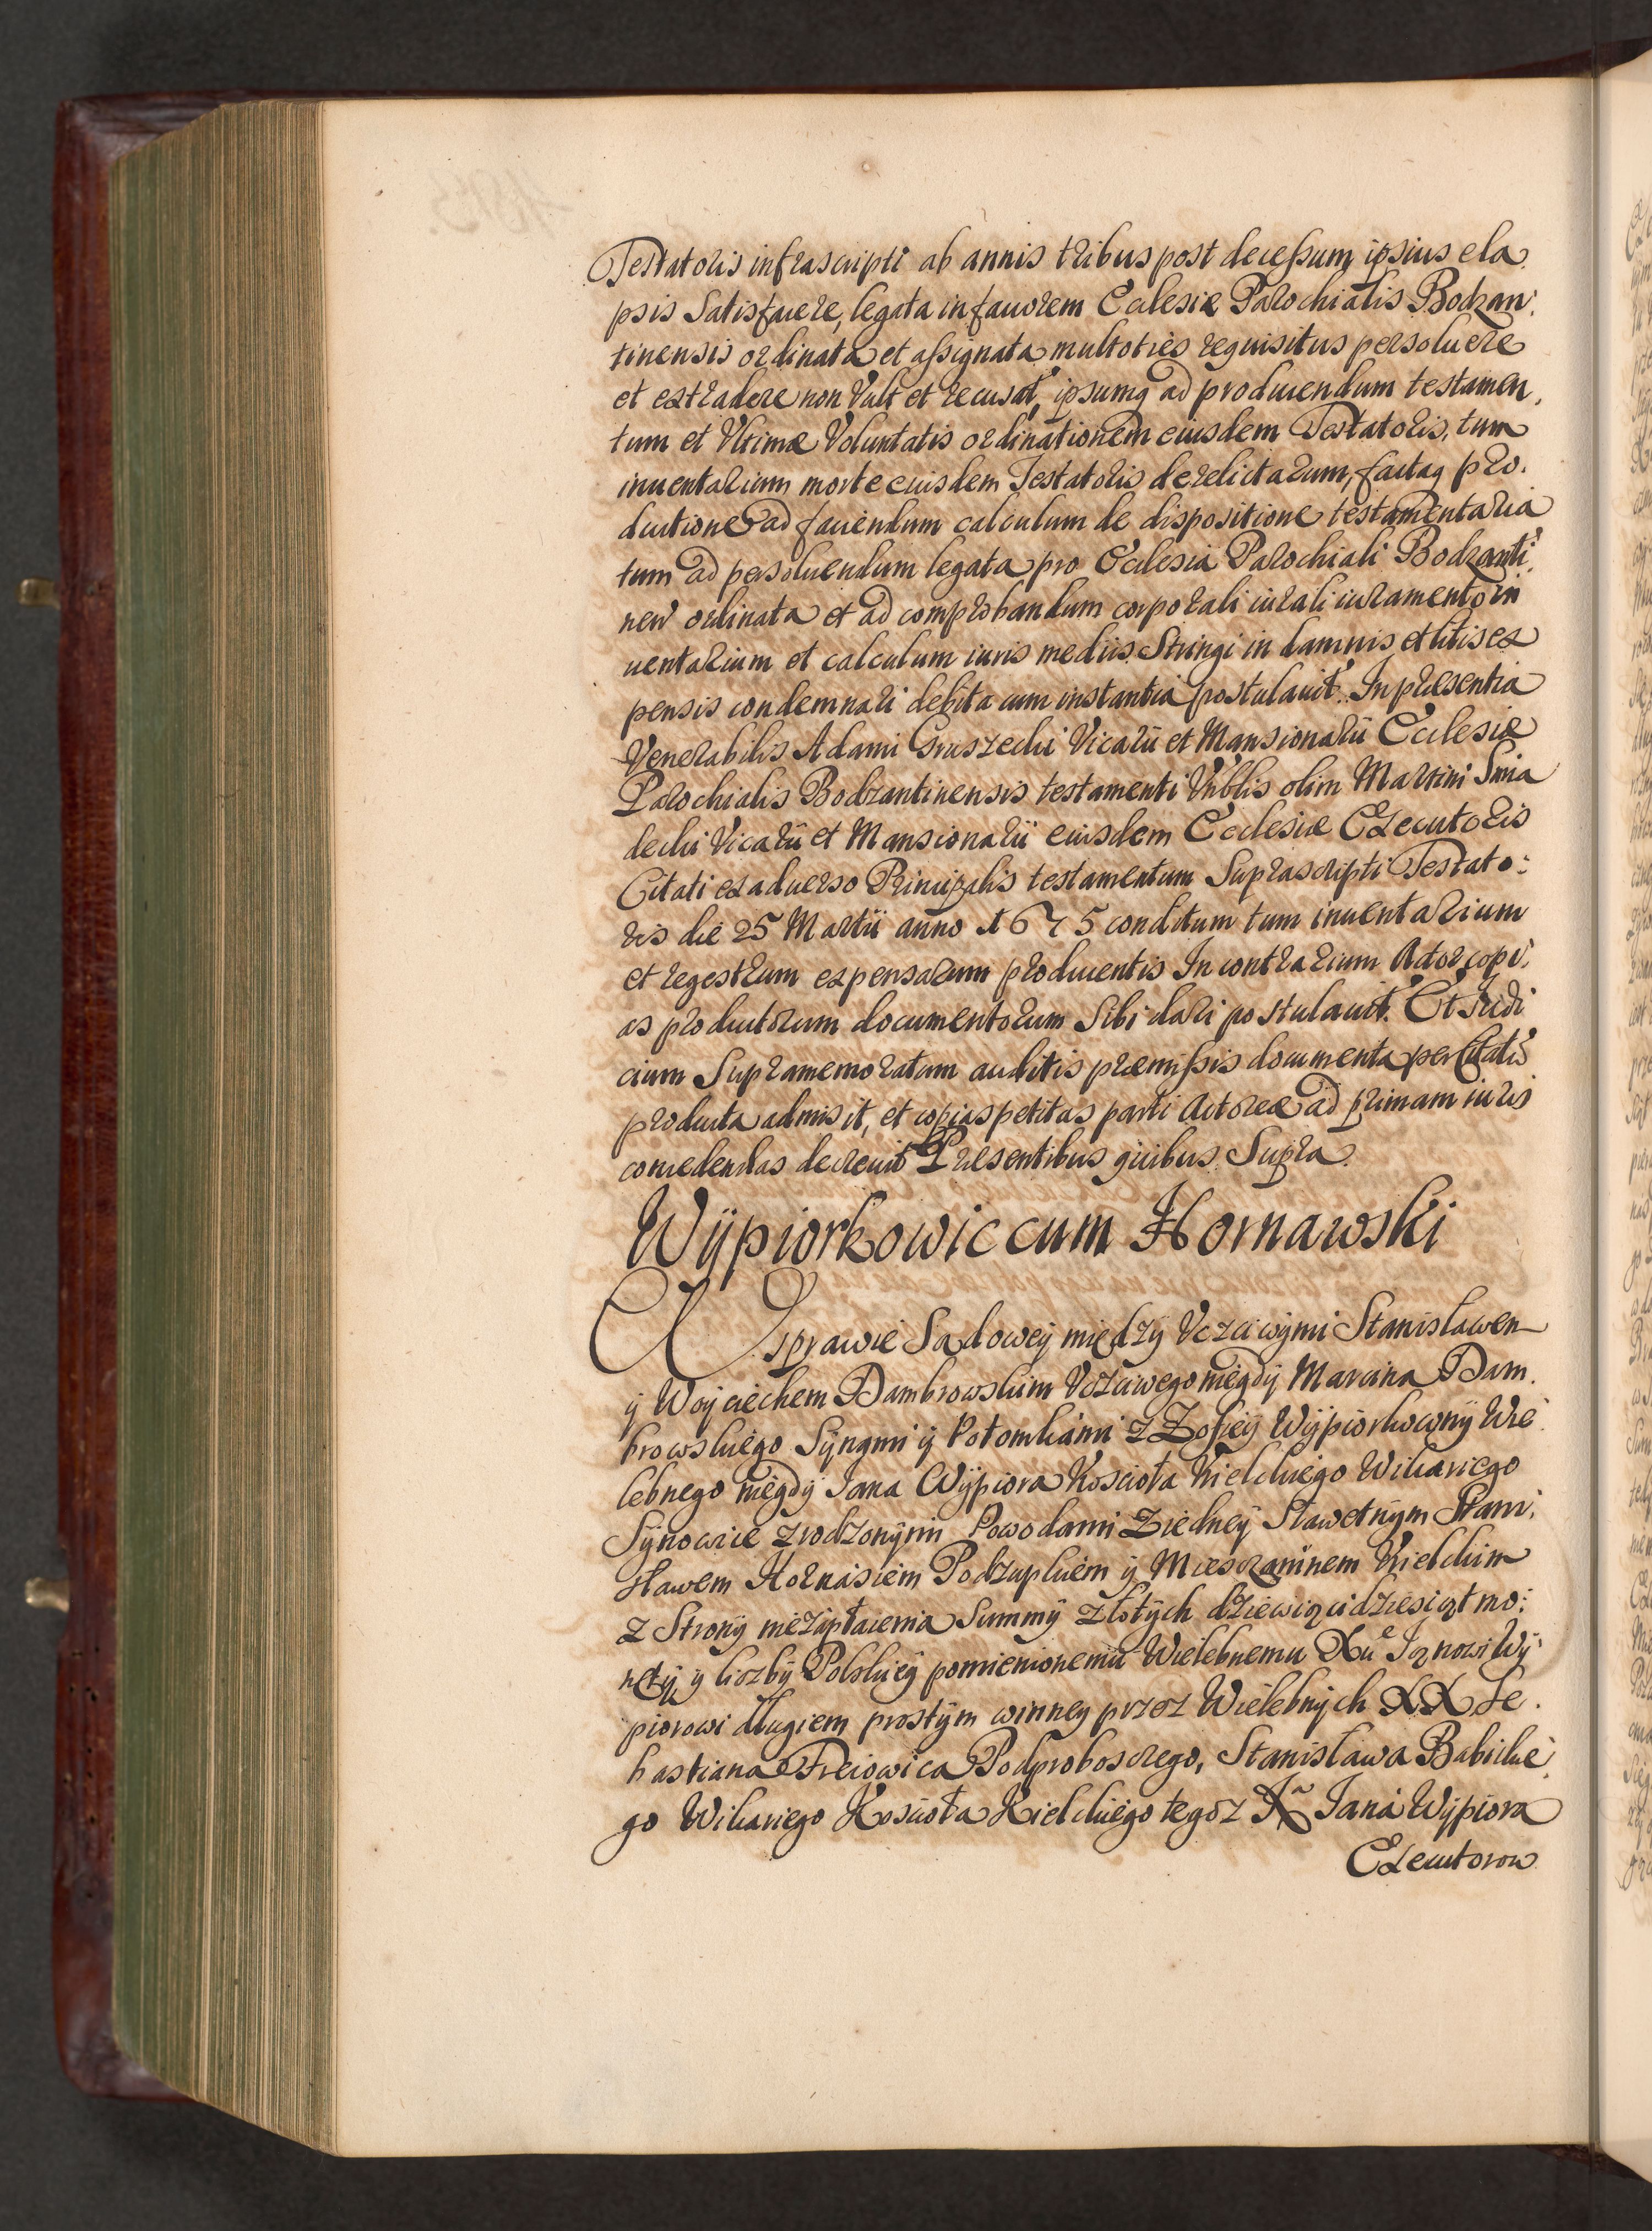 Testatoris infrascripti ab annis tribus post decessum ipsius ela
psis Satisfacere, legata in fauorem Ecclesiæ Parochialis Bodzan:
tinensis ordinata et assignata multoties requisitus persoluere
et extradere non Vult et recusat, ipsumq ad producendum testamen,
tum et Vltimæ Voluntatis ordinationem eiusdem Testatoris, tum
inuentarium morte eiusdem Testatoris derelictarum, factaq pro:
ductione ad faciendum calculum de dispositione testamentaria
tum ad persoluendum legata pro Ecclesia Parochiali Bodzanti:
nen ordinata et ad comprobandum corporali iurali iuramento in
uentarium et calculum iuris mediis Stringi in damnis et litis ex
pensis condemnari debita cum instantia postulauit. In præsentia
Venerabilis Adami Gruszecki Vicarii et Mansionarii Ecclesiæ
Parochialis Bodzantinensis testamenti Vnblis olim Martini Smia
decki Vicarii et Mansionarii eiusdem Ecclesiæ Executoris
Citati ex aduerso Principalis testamentum Suprascripti Testato:
ris die 25 Martii anno 1675 conditum tum inuentarium
et regestrum expensarum producentis In contrarium Actor copi:
as productorum documentorum Sibi dari postulauit. Et Iudi
cium Supramemoratum auditis præmissis documenta per Citatum
producta admisit, et copias petitas parti Actoreæ ad primam iuris
concedendas decreuit Præsentibus quibus Supra.
Wÿpiorkowic cum Hornawski
W sprawie Sądoweÿ międzÿ Vczciwÿmi Stanisławem
ÿ Woÿciechem Dambrowskim Vczciwego niegdÿ Marcina Dam.
browskiego Sÿnami ÿ Potomkami z Zofieÿ Wÿpiorkownÿ Wie
lebnego niegdÿ Iana Wÿpiora Kościoła Kielckiego Wikariego
Sÿnowice zrodzonÿmi Powodami z iedneÿ Sławetnÿm Stani:
sławem Hornasiem Podzupkiem ÿ Miesczaninem Kielckim
z Stronÿ niezapłacenia Summÿ złotÿch dziewiącidziesiąt mo:
netÿ ÿ liczbÿ Polskieÿ pomienionemu Wielebnemu Xu Ianowi Wÿ:
piorowi długiem prostÿm winneÿ przez Wielebnÿch XX Se.
bastiana Freiowica Podproboscego, Stanisława Babicke
go Wikariego Kościoła Kielckiego tegoz X Iana Wÿpiora
Executorow